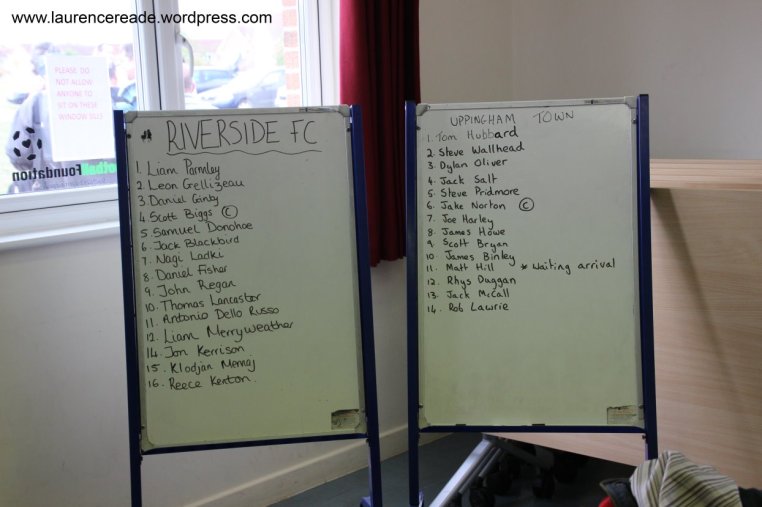 www.laurencereade.wordpress.com
PLEASE DO
NOT ALLOW
ANYONE TO
SIT ON THESE
WINDOW SILLS
Foundation
RIVERSIDE FC
1. Liam Parnley
2. Leon Grellizeau
3. Daniel Ginby
4. Scott Biggs ©
5. Samuel Donohoe
6. Jack Blackbird
7. Nagi Ladki
8. Daniel Fisher
9. John Regan
10. Thomas Lancaster
11. Antonio Dello Russo
12. Liam Merryweather
14. Jon Kerrison
15. Klodjan Memaj
16. Reece Kenton.
UPPINGHAM TOWN
1. Tom Hubbard
2. Steve Wallhead
3. Dylan Oliver
4. Jack Salt
5. Steve Pridmore
6. Jake Norton ©
7. Joe Harley
8. James Howe
9. Scott Bryan
10. James Binley
11. Matt Hill * Waiting arrival
12. Rhys Duggan
13. Jack McCall
14. Rob Lawrie